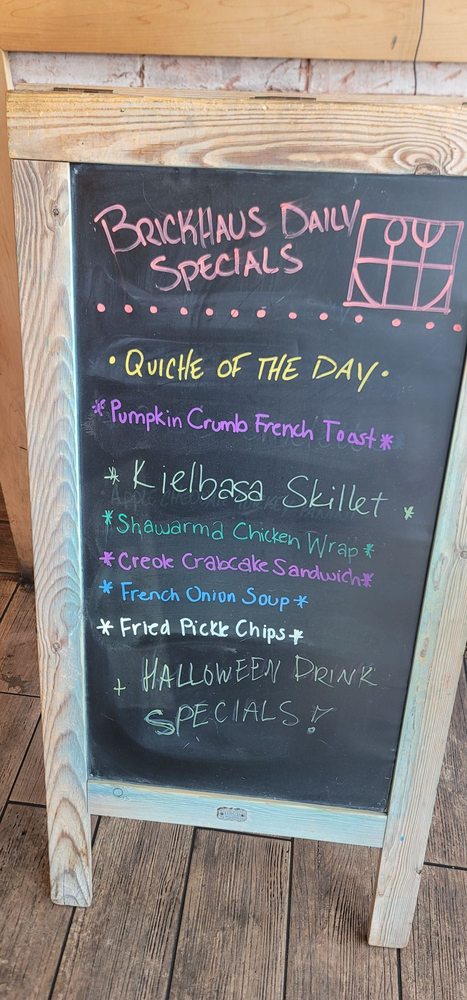 BRICKHAUS DAILY
SPECIALS
• QUICHE OF THE DAY •
* Pumpkin Crumb French Toast *
* Kielbasa Skillet *
* Shawarma Chicken Wrap *
* Creole Crabcake Sandwich *
* French Onion Soup *
* Fried Pickle Chips *
+ HALLOWEEN DRINK
SPECIALS!